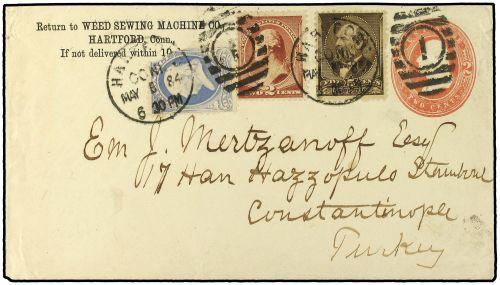 Return to WEED SEWING MACHINE CO.,
HARTFORD, Conn.,
If not delivered within 10
HA
CON
MAY 84
6 30 PM
TWO 2 CENTS
1
TWO CENTS
Em J. Mertzanoff Esq
17 Han Hazzopulo Stamboul
Constantinople
Turkey